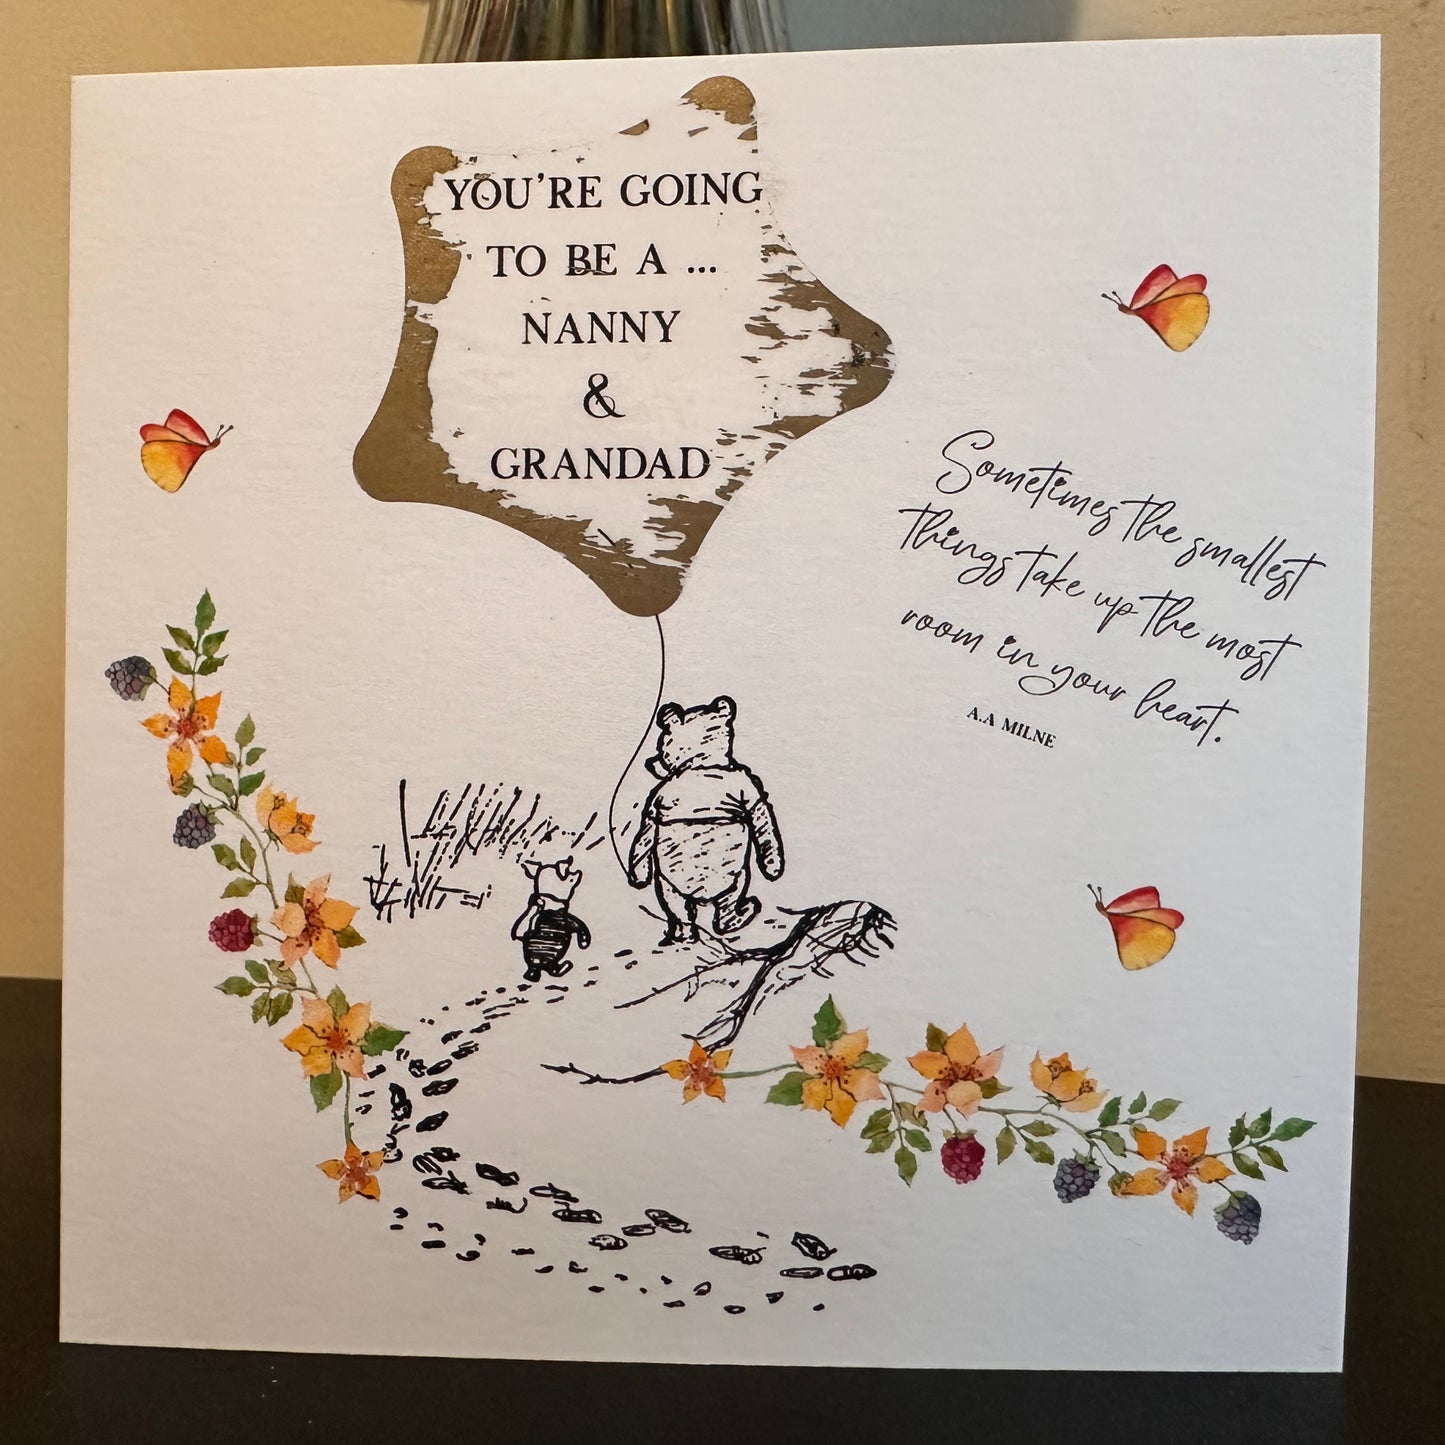 YOU'RE GOING
TO BE A ...
NANNY
&
GRANDAD
Sometimes the smallest
things take up the most
room in your heart.
A.A MILNE